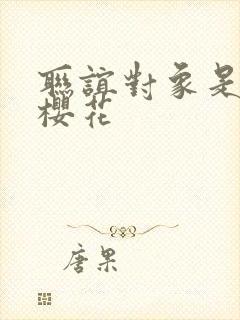 聯誼對象是
櫻花
唐果